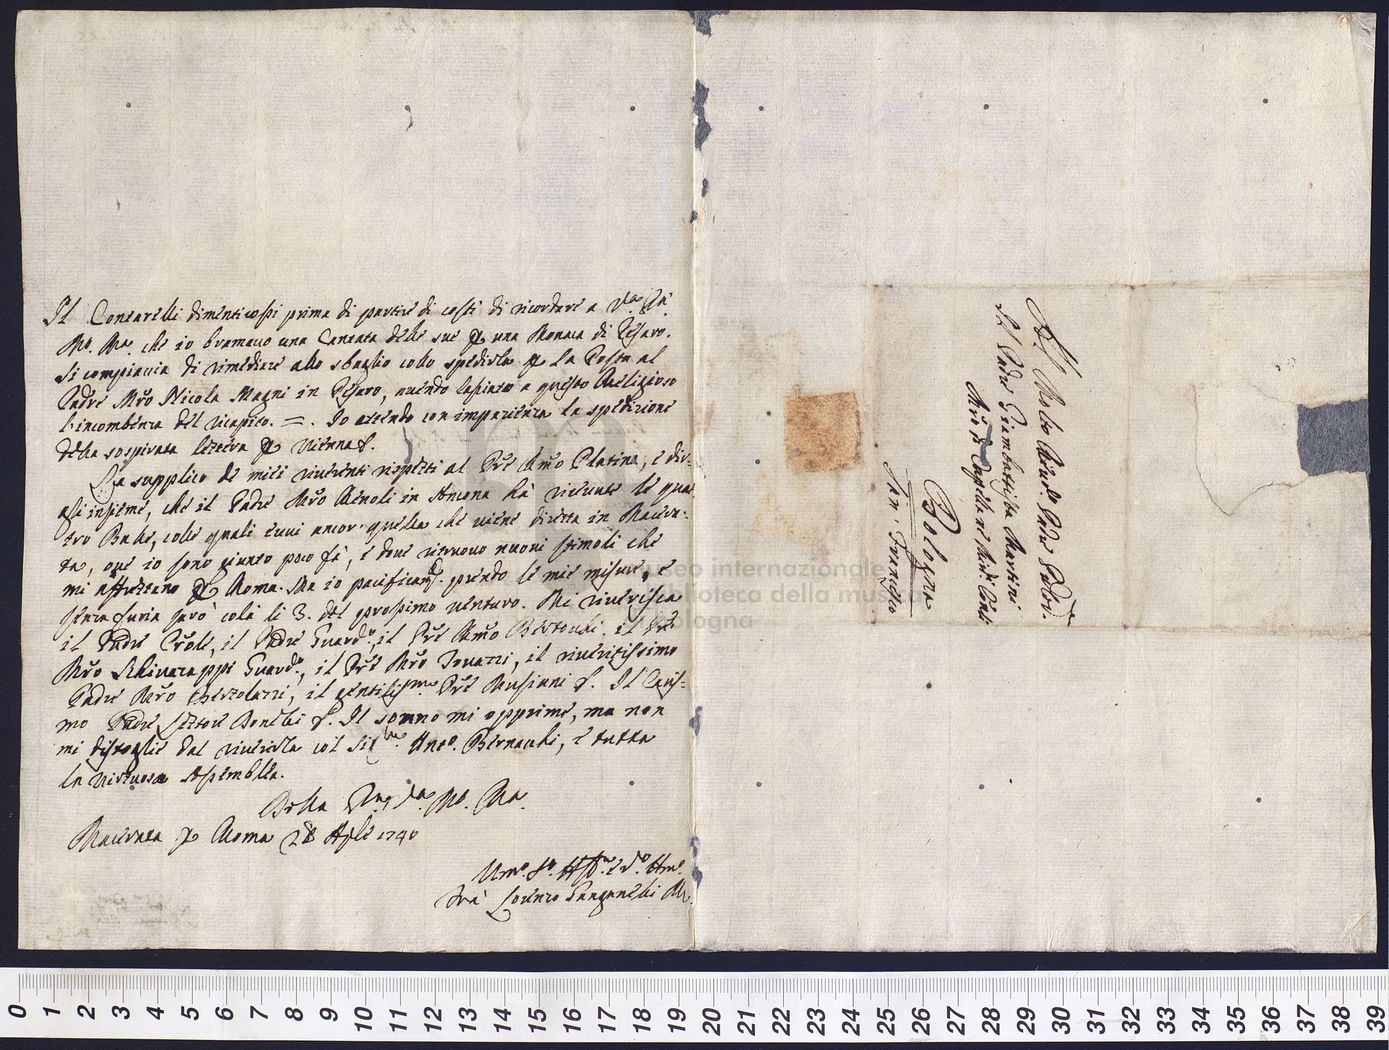 Il Contarelli dimenticossi prima di partire di costì di ricordare a V.ra
M.to R.a che io bramavo una Cantata delle sue p una Monaca di Pesaro.
Si compiaccia di rimediare allo sbaglio collo spedirla p la Posta al
Padre Mro Nicola Magni in Pesaro, avendo lasciato a questo Religioso
l'incombenza del ricapito. =. Io attendo con impazienza la spedizione
della sospirata lettera p Vienna
La supplico de miei riverenti rispetti al Pre Mro Platina, e dir-
gli insieme, che il Padre Mro Menoli in Ancona hà ricevute le quat-
tro Balle, colle quali evvi ancor quella che viene diretta in Macera-
ta, ove io sono giunto poco fà, e dove ritruovo nuovi stimoli che
mi affrettano p Roma. Ma io pacificamte prendo le mie misure, e
senza furia sarò colà li 3. del prossimo venturo. Mi riverisca
il Padre il Padre Guardo, il Pre Mro il Pre
Mro Schivazappi Guardo, il Pre Mro il riveritissimo
Padre Mro Bertolazzi, il gentilissmo Pre Musiani Il Caris-
mo Padre Lettore Il sonno mi opprime, ma non
mi distoglie dal riverirla col Sigre Anto. Bernacchi, e tutta
la virtuosa Assemblea.
Della M.to Ra.
Macerata p Roma 28 Aple 1740
Umo Affmo Amo
Frà Lorenzo Ganganelli
Al Molto Rndo Padre
Il Padre Giambattista Martini
Mro di Cappella ne
Bologna
San Francesco
museo internazionale
biblioteca della musica
bologna
0 1 2 3 4 5 6 7 8 9 10 11 12 13 14 15 16 17 18 19 20 21 22 23 24 25 26 27 28 29 30 31 32 33 34 35 36 37 38 39